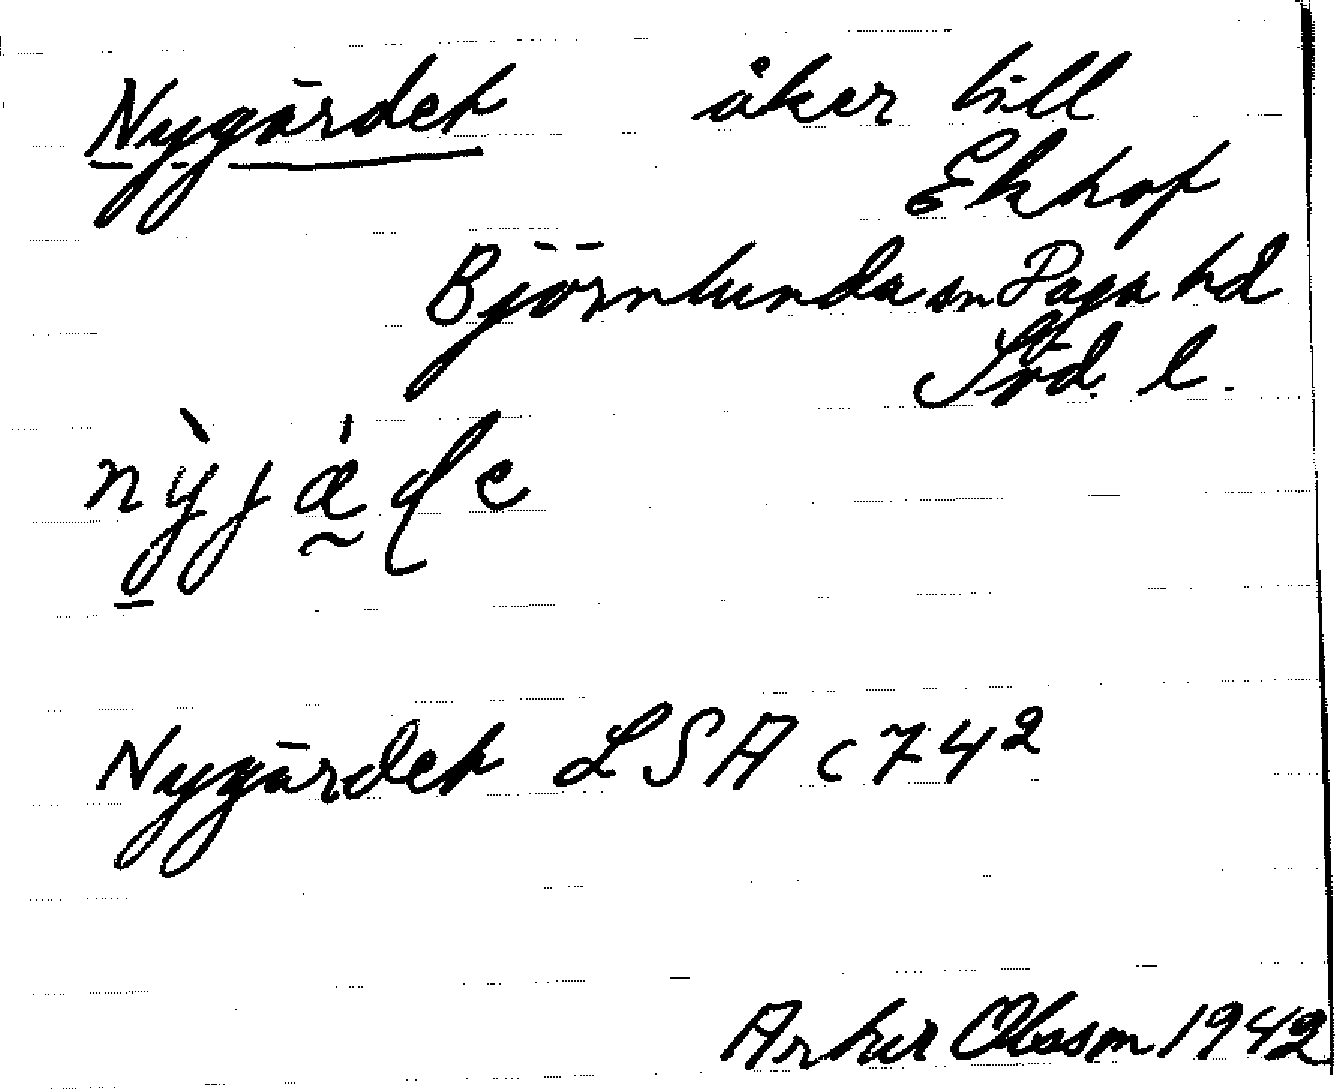 Nygärdet åker till
Ekhof
Björnlunda sn Daga hd
Söd. l.
Nygärdet LSA C 74²
Artur Olsson 1942